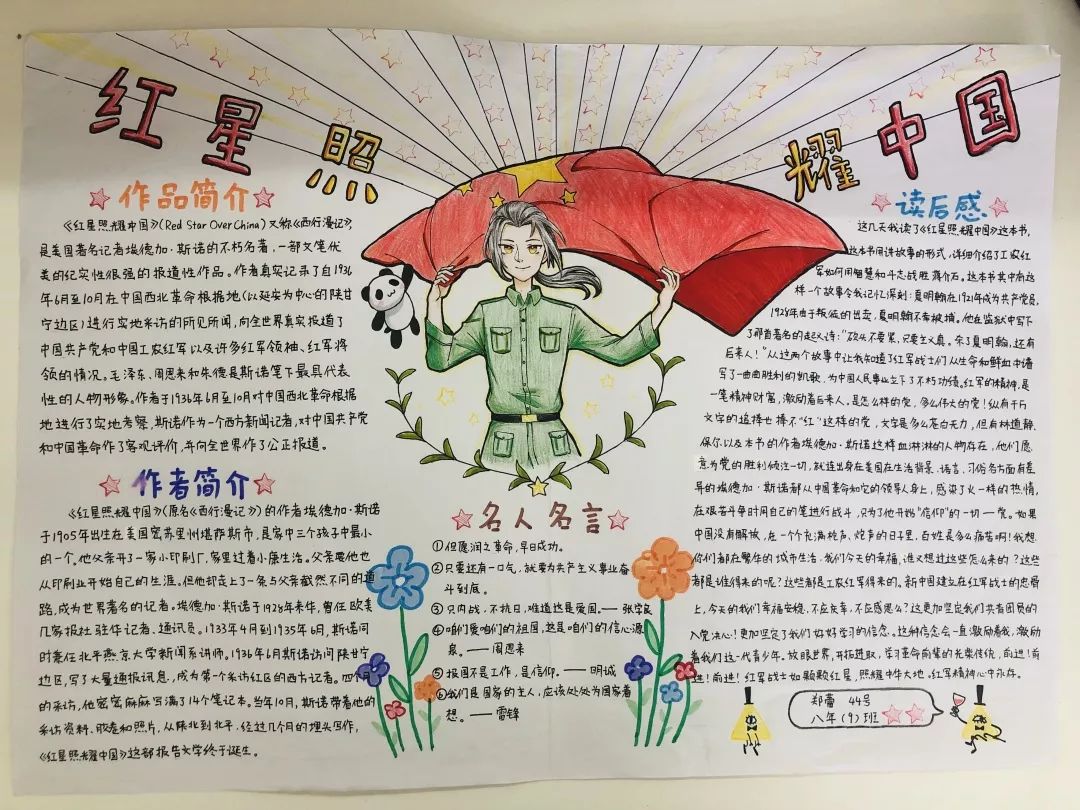 红星照耀中国
☆作品简介☆
《红星照耀中国》(Red Star Over China)又称《西行漫记》,
是美国著名记者埃德加·斯诺的不朽名著,一部文笔优
美的纪实性很强的报道性作品。作者真实记录了自1936
年6月至10月在中国西北革命根据地(以延安为中心的陕甘
宁边区)进行实地采访的所见所闻,向全世界真实报道了
中国共产党和中国工农红军以及许多红军领袖、红军将
领的情况。毛泽东、周恩来和朱德是斯诺笔下最具代表
性的人物形象。作者于1936年6月至10月对中国西北革命根据
地进行了实地考察,斯诺作为一个西方新闻记者,对中国共产党
和中国革命作了客观评价,并向全世界作了公正报道。
☆作者简介☆
《红星照耀中国》(原名《西行漫记》)的作者埃德加·斯诺
于1905年出生在美国密苏里州堪萨斯市,是家中三个孩子中最小
的一个。他父亲开了一家小印刷厂,家里过着小康生活。父亲要他也
从印刷业开始自己的生涯,但他却走上了一条与父亲截然不同的道
路,成为世界著名的记者。埃德加·斯诺于1928年来华,曾任欧美
几家报社驻华记者、通讯员。1933年4月到1935年6月,斯诺同
时兼任北平燕京大学新闻系讲师。1936年6月斯诺访问陕甘宁
边区,写了大量通报讯息,成为第一个采访红区的西方记者。四个月
的采访,他密密麻麻写满了14个笔记本。当年10月,斯诺带着他的
采访资料、胶卷和照片,从陕北到北平,经过几个月的埋头写作,
《红星照耀中国》这部报告文学终于诞生。
☆名人名言☆
①但愿润之革命,早日成功。
②只要还有一口气,就要为共产主义事业奋
斗到底。
③只内战,不抗日,难道这是爱国。——张学良
④咱们爱咱们的祖国,这是咱们的信心源
泉。——周恩来
⑤报国不是工作,是信仰。——明诚
⑥我们是国家的主人,应该处处为国家着
想。——雷锋
☆读后感☆
这几天我读了《红星照耀中国》这本书,
这本书用讲故事的形式,详细介绍了工农红
军如何用智慧和斗志战胜蒋介石。这本书其中有这
样一个故事令我记忆深刻:夏明翰在1921年成为共产党员,
1928年由于叛徒的出卖,夏明翰不幸被捕。他在监狱中写下
了那首著名的起义诗:"砍头不要紧,只要主义真。杀了夏明翰,还有
后来人!"从这两个故事中让我知道了红军战士们从生命和鲜血中谱
写了一曲曲胜利的凯歌,为中国人民事业立下了不朽功绩。红军的精神,是
一笔精神财富,激励着后来人。是怎么样的党,多么伟大的党!纵有千万
文字的追捧也捧不"红"这样的党,文字是多么苍白无力,但有林道静、
保尔以及本书的作者埃德加·斯诺这样血淋淋的人物存在,他们愿
意为党的胜利倾注一切,就连出身在美国在生活背景、语言、习俗各方面有差
异的埃德加·斯诺都从中国革命和它的领导人身上,感染了火一样的热情,
在艰苦斗争时用自己的笔进行战斗,只为了他开始"信仰"的一切——党。如果
中国没有解放,在一个充满枪声、炮声的日子里,百姓是多么痛苦啊!我想
你们都在繁华的城市生活,我们今天的幸福,谁又想过这些怎么来的?这些
都是谁得来的呢?这些都是工农红军得来的。新中国建立在红军战士的忠骨
上,今天的我们幸福安稳,不应庆幸,不应感恩么?这更加坚定了我们共青团员的
入党决心!更加坚定了我们好好学习的信念。这种信念会一直激励着我,激励
着我们这一代青少年。放眼世界,开拓进取,学习革命前辈的光荣传统,前进!前
进!前进!红军战士如颗颗红星,照耀中华大地。红军精神心中永存。
郑蕾 44号
八年(9)班☆☆